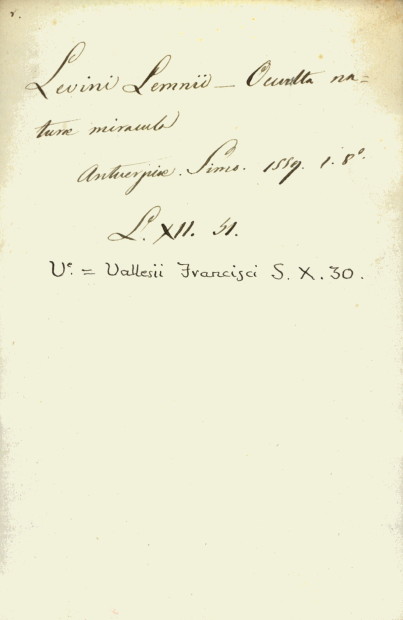 Levini Lemnii — Occulta na=
turæ miracula
Antverpiæ. Simo. 1559. 1. 8º.
L. XII. 31.
Vᵉ. = Vallesii Francisci S. X. 30.